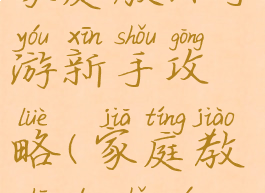 yóu xīn shǒu gōng
游新手攻
lüè jiā tíng jiào
略(家庭教